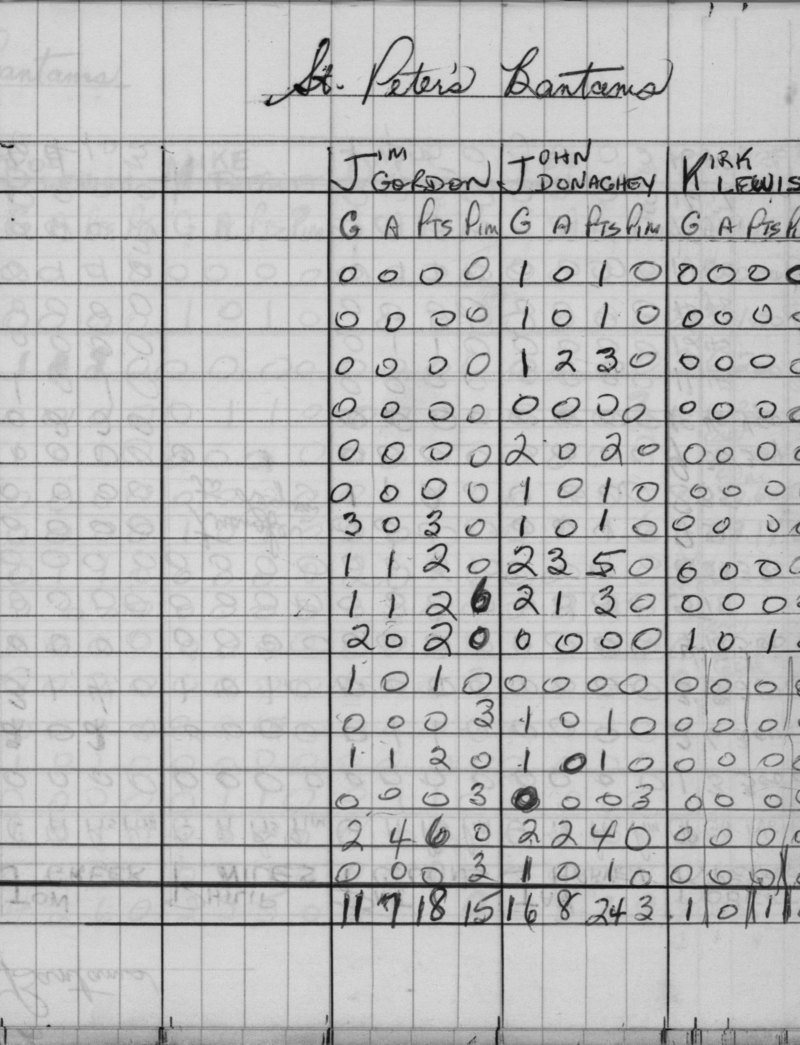 St. Peter's Bantams
JIM GORDON JOHN DONAGHEY KIRK LEWIS
G A PTS PIM G A PTS PIM G A PTS
0 0 0 0 1 0 1 0 0 0 0 0
0 0 0 0 1 0 1 0 0 0 0 0
0 0 0 0 1 2 3 0 0 0 0 0
0 0 0 0 0 0 0 0 0 0 0 0
0 0 0 0 2 0 2 0 0 0 0 0
0 0 0 0 1 0 1 0 0 0 0
3 0 3 0 1 0 1 0 0 0 0 0
1 1 2 0 2 3 5 0 0 0 0 0
1 1 2 6 2 1 3 0 0 0 0 0
2 0 2 0 0 0 0 0 1 0 1
1 0 1 0 0 0 0 0 0 0 0 0
0 0 0 3 1 0 1 0 0 0 0 0
1 1 2 0 1 0 1 0 0 0 0 0
0 0 0 3 0 0 0 3 0 0 0 0
2 4 6 0 2 2 4 0 0 0 0 0
0 0 0 3 1 0 1 0 0 0 0 0
11 7 18 15 16 8 24 3 1 0 1